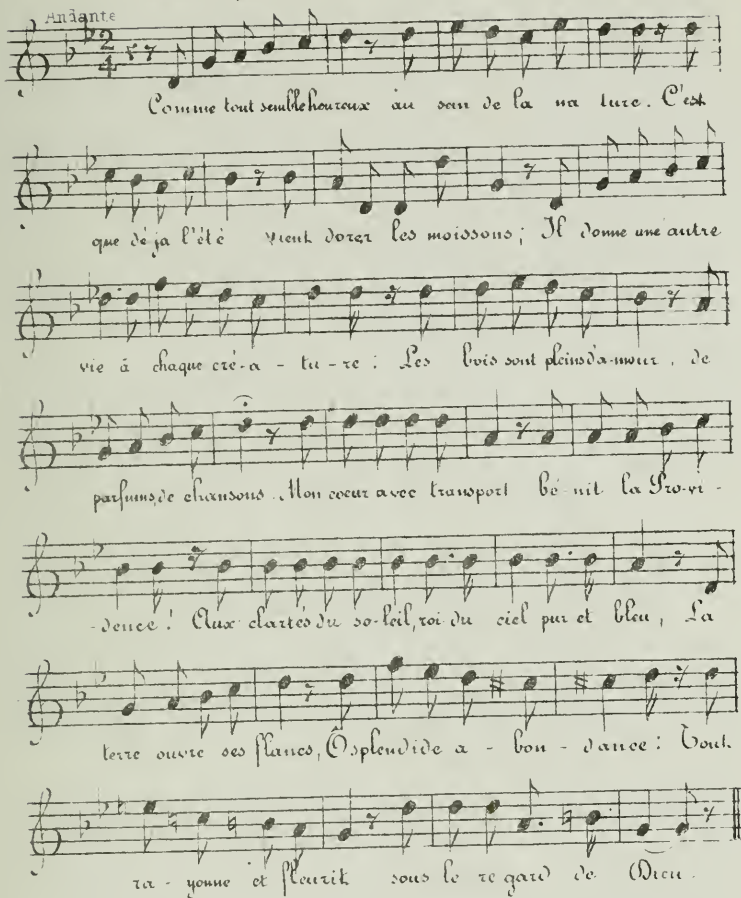 Andante
2
4
Comme tout semble heureux au sein de la na ture. C'est
que déja l'été vient dorer les moissons; Il donne une autre
vie à chaque cré-a-tu-re: Les bois sont pleins d'a-mour, de
parfums, de chansons. Mon coeur avec transport bé-nit la Pro-vi-
-dence! Aux clartés du so-leil, roi du ciel pur et bleu, La
terre ouvre ses flancs, Ô splendide a-bon-dance: Tout
ra-yonne et fleurit sous le re gard de Dieu.